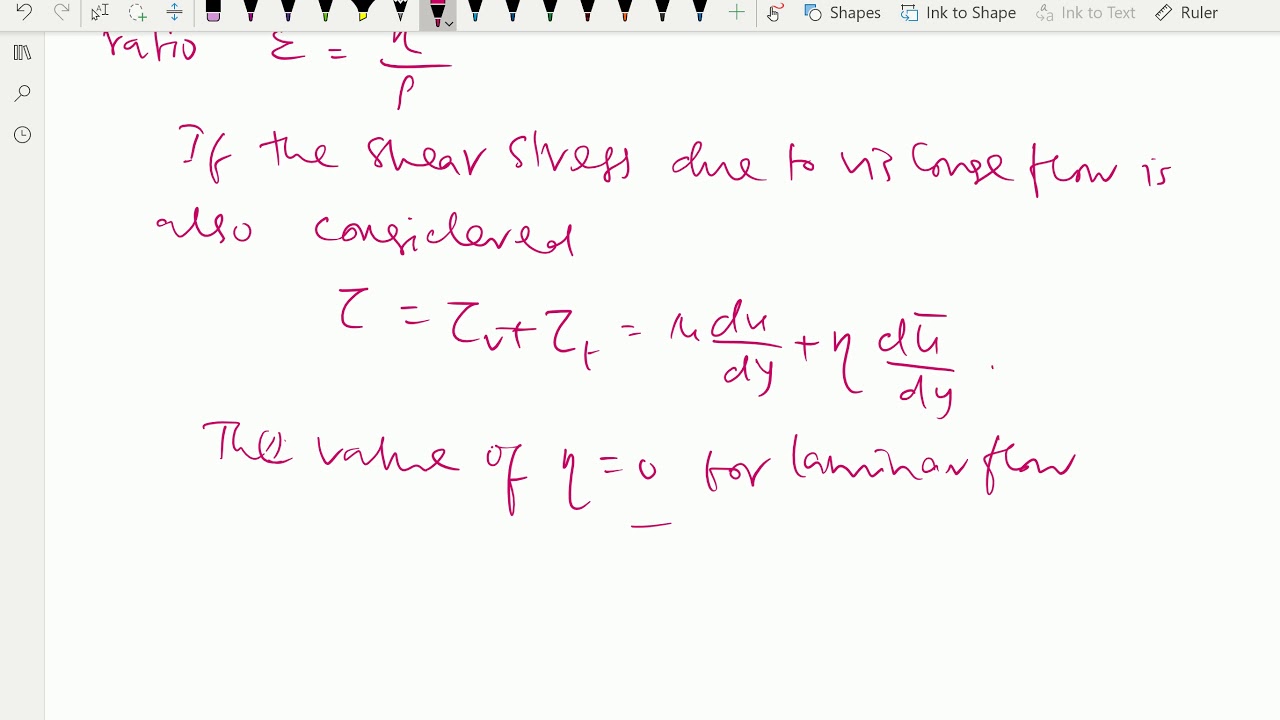 Shapes Ink to Shape Ink to Text Ruler
ratio Ɛ = η/ρ
If the shear stress due to viscouse flow is
also considered
τ = τv + τt = μ du/dy + η dū/dy .
The value of η = 0 for laminar flow